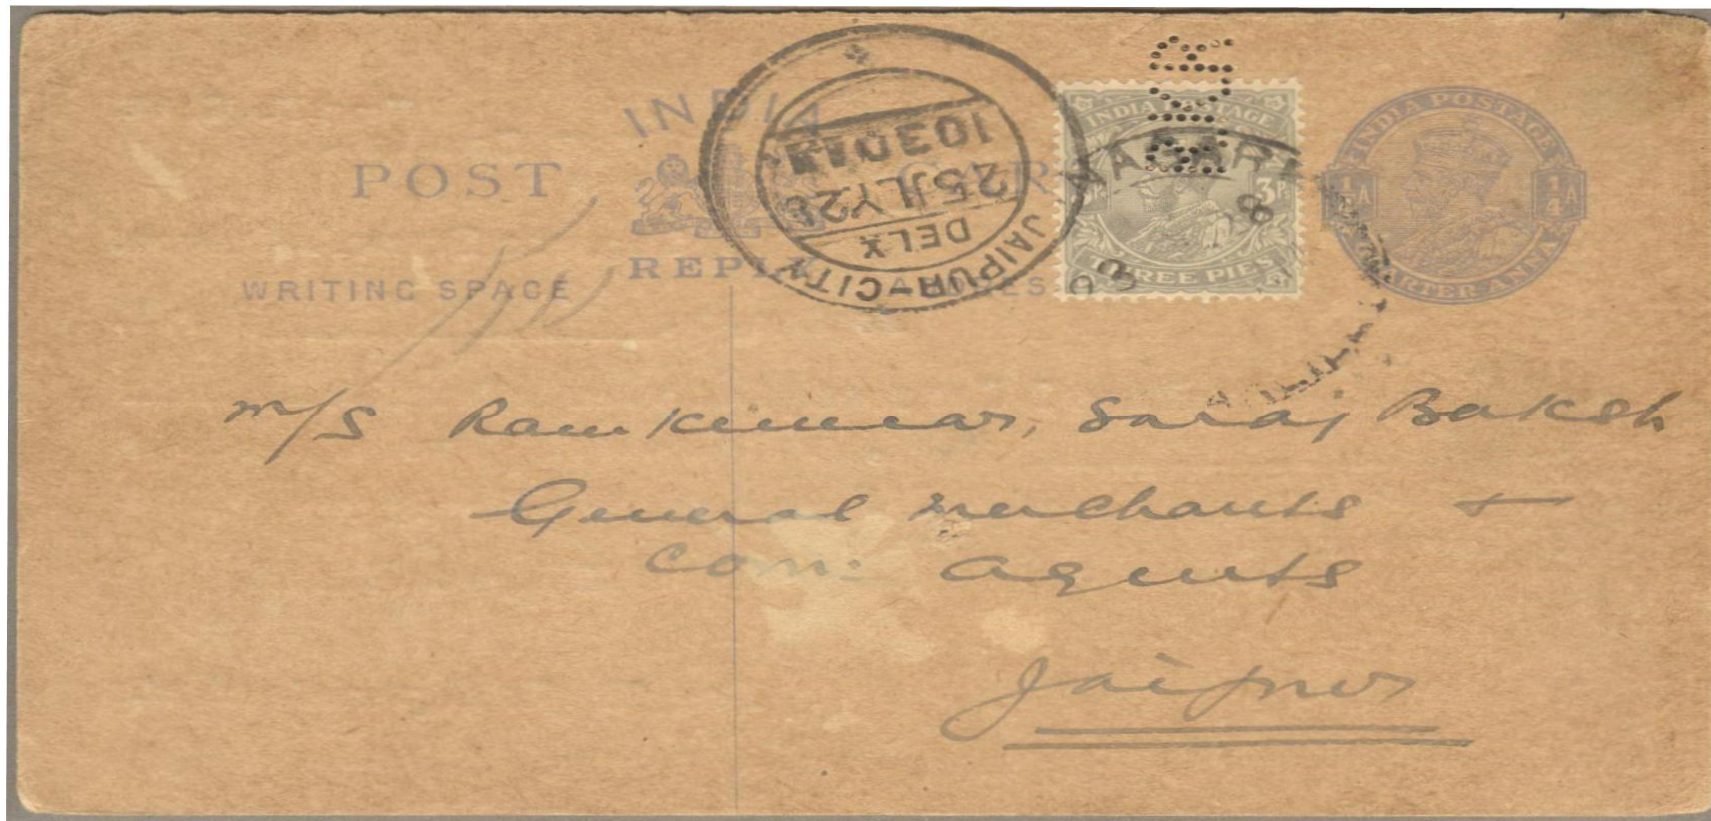 INDIA
POST CARD
REPLY
WRITING SPACE
JAIPUR-CITY
DELY
25 JLY 28
10 30 AM
INDIA POSTAGE
3 P
THREE PIES
INDIA POSTAGE
¼ A ¼ A
QUARTER ANNA
M/S Ramkumar, Saraj Baksh
General Merchants +
Com: Agents
Jaipur